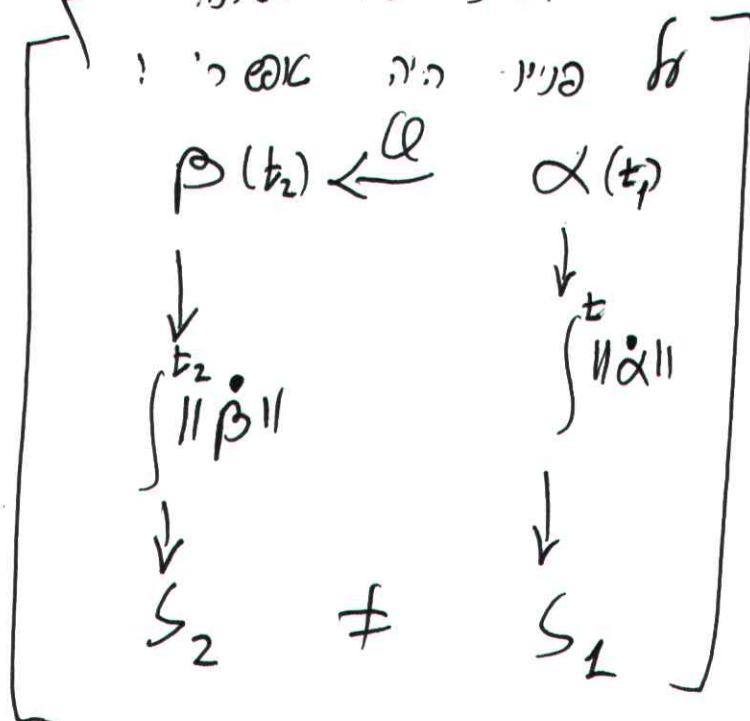 על פניו היה אפשרי !
β(t₂) ←φ α(t₁)
↓ ↓
∫^{t₂} ‖β̇‖ ∫^{t} ‖α̇‖
↓ ↓
S₂ ≠ S₁